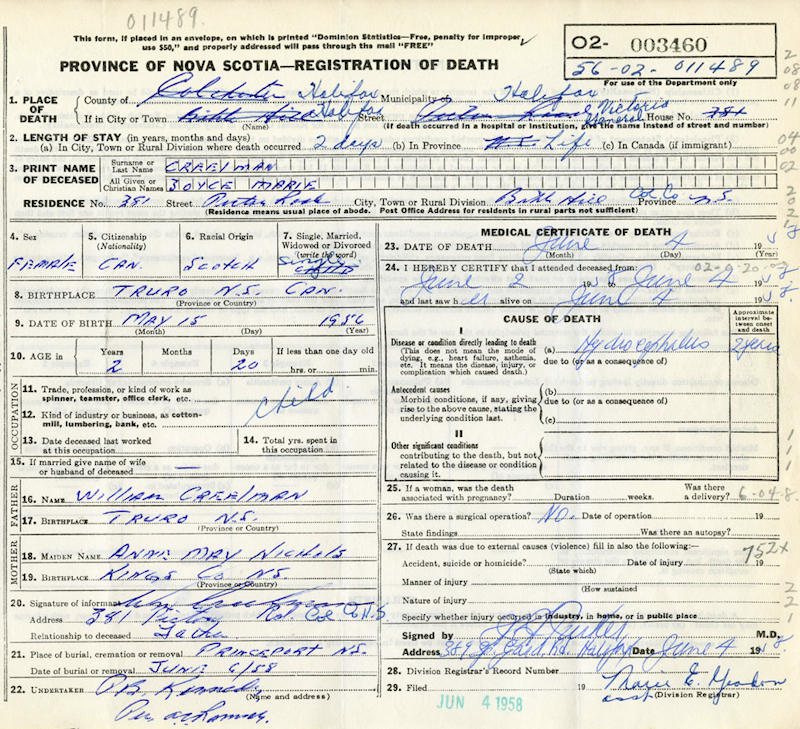 011489.
This form, if placed in an envelope, on which is printed "Dominion Statistics—Free, penalty for improper
use $50," and properly addressed will pass through the mail "FREE"
O2- 003460
56-02-011489
For use of the Department only
PROVINCE OF NOVA SCOTIA—REGISTRATION OF DEATH
1. PLACE OF DEATH
County of Colchester Halifax Municipality of Halifax
If in City or Town Bible Hill Halifax Street Victoria General House No. 381
(Name) (If death occurred in a hospital or institution, give the name instead of street and number)
2. LENGTH OF STAY (in years, months and days)
(a) In City, Town or Rural Division where death occurred 2 days (b) In Province Life (c) In Canada (if immigrant)
3. PRINT NAME OF DECEASED
Surname or Last Name CREELMAN
All Given or Christian Names JOYCE MARIE
RESIDENCE No. 381 Street Road City, Town or Rural Division Bible Hill Col Co Province N.S.
(Residence means usual place of abode. Post Office Address for residents in rural parts not sufficient)
4. Sex
FEMALE
5. Citizenship (Nationality)
CAN.
6. Racial Origin
SCOTCH
7. Single, Married, Widowed or Divorced (write the word)
Single
8. BIRTHPLACE TRURO N.S. CAN.
(Province or Country)
9. DATE OF BIRTH MAY 15 1956
(Month) (Day) (Year)
10. AGE in Years Months Days If less than one day old
2 20 hrs. or min.
OCCUPATION
11. Trade, profession, or kind of work as spinner, teamster, office clerk, etc.
child
12. Kind of industry or business, as cotton-mill, lumbering, bank, etc.
13. Date deceased last worked at this occupation
14. Total yrs. spent in this occupation
15. If married give name of wife or husband of deceased —
FATHER
16. NAME WILLIAM CREELMAN
17. BIRTHPLACE TRURO N.S.
(Province or Country)
MOTHER
18. MAIDEN NAME ANNE MAY NICHOLS
19. BIRTHPLACE KINGS CO N.S.
(Province or Country)
20. Signature of informant
Address 381 Rd. Col Co N.S
Relationship to deceased Father
21. Place of burial, cremation or removal PRINCEPORT N.S.
Date of burial or removal JUNE 6/58
22. UNDERTAKER P.B. Kennedy
(Name and address)
Per
MEDICAL CERTIFICATE OF DEATH
23. DATE OF DEATH June 4 1958
(Month) (Day) (Year)
24. I HEREBY CERTIFY that I attended deceased from:
June 2 1958 June 4 1958
and last saw h er alive on June 4 1958.
CAUSE OF DEATH
Approximate interval between onset and death
I
Disease or condition directly leading to death
(This does not mean the mode of dying, e.g., heart failure, asthenia, etc. It means the disease, injury, or complication which caused death.)
(a) Hydrocephalus 2 years
due to (or as a consequence of)
Antecedent causes
Morbid conditions, if any, giving rise to the above cause, stating the underlying condition last.
(b)
due to (or as a consequence of)
(c)
II
Other significant conditions
contributing to the death, but not related to the disease or condition causing it.
25. If a woman, was the death associated with pregnancy? Duration weeks. Was there a delivery? 6-04-8
26. Was there a surgical operation? NO. Date of operation 19
State findings Was there an autopsy?
27. If death was due to external causes (violence) fill in also the following:— 752x
Accident, suicide or homicide? Date of injury 19
(State which)
Manner of injury
(How sustained
Nature of injury
Specify whether injury occurred in industry, in home, or in public place
Signed by M.D.
Address Halifax Date June 4 1958
28. Division Registrar's Record Number
29. Filed JUN 4 1958 19
asst (Division Registrar)